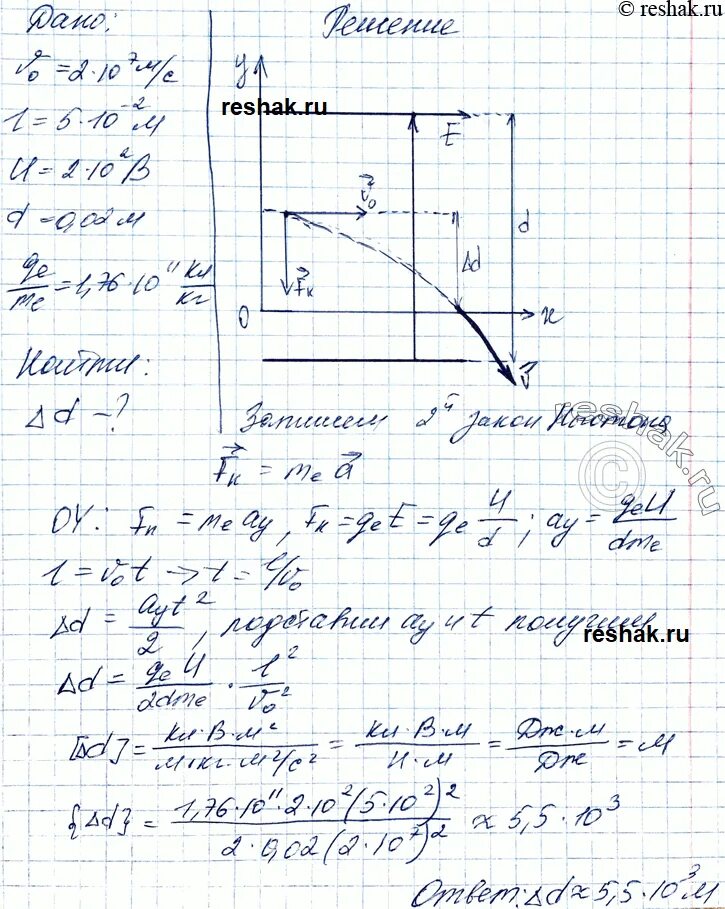 © reshak.ru
Дано: Решение
v₀ = 2·10⁷ м/с
l = 5·10⁻² м
U = 2·10² В
d = 0,02 м
qe/me = 1,76·10¹¹ Кл/кг
Найти:
Δd – ?
y
reshak.ru
E
v₀
d
Δd
Fк
0
x
Запишем 2й закон Ньютона
reshak.ru
©
Fк = me a
OY: Fк = me ay, Fк = qe E = qe U/d; ay = qeU/dme
l = v₀t → t = l/v₀
Δd = ayt²/2, подставим ay и t получим
reshak.ru
Δd = qe U/2dme · l²/v₀²
[Δd] = Кл·В·м²/м·кг·м²/с² = Кл·В·м/Н·м = Дж·м/Дж = м
{Δd} = 1,76·10¹¹·2·10²(5·10²)²/2·0,02(2·10⁷)² ≈ 5,5·10³
Ответ: Δd ≈ 5,5·10³ м